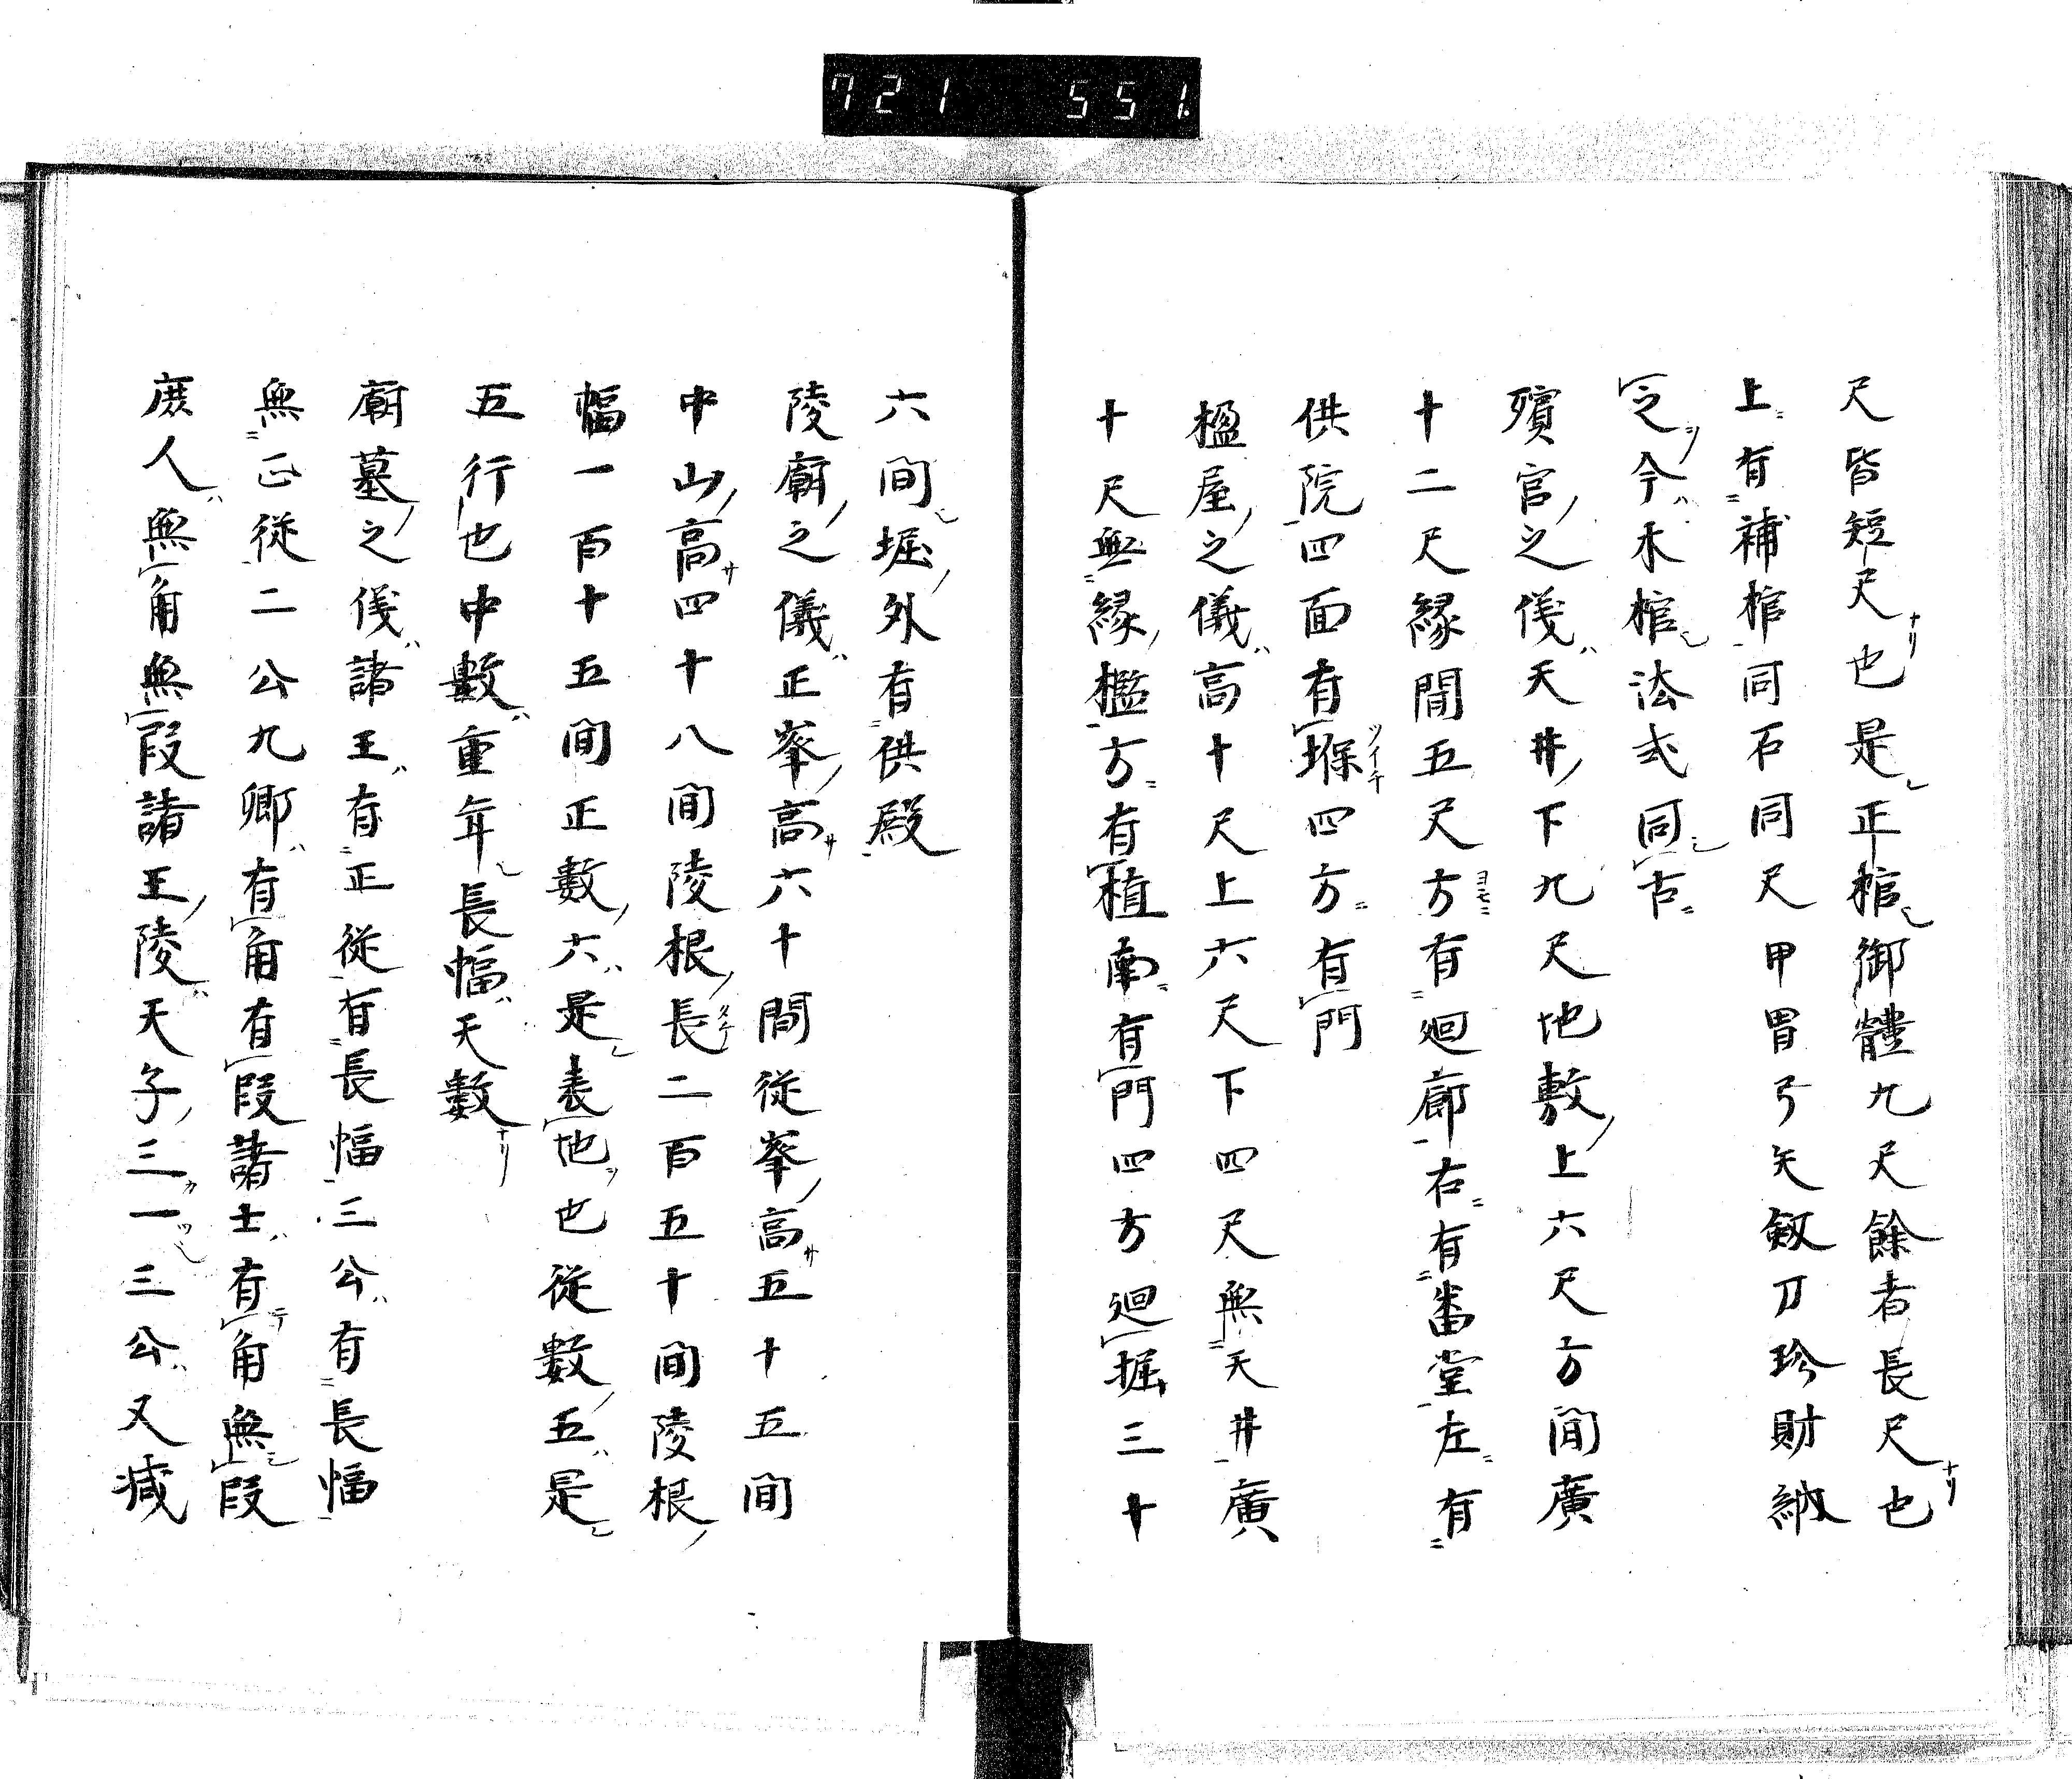 721 551
尺皆短尺也是正棺御體九尺餘者長尺也
上有補棺同石同尺甲冑弓矢劔刀珍財納
之今木棺法式同古
殯官之儀天井下九尺地敷上六尺方間廣
十二尺緣間五尺方有廻廊右有番堂左有
供院四面有堢四方有門
楹屋之儀高十尺上六尺下四尺無天井廣
十尺無緣檻方有植南有門四方廻掘三十
六間堀外有供殿
陵廟之儀正峯高六十間從峯高五十五間
中山高四十八間陵根長二百五十間陵根
幅一百十五間正數六是表地也從數五是
五行也中數重年長幅天數
廟墓之儀諸王有正從有長幅三公有長幅
無正從二公九卿有角有段諸士有角無段
庶人無角無段諸王陵天子三一三公又减